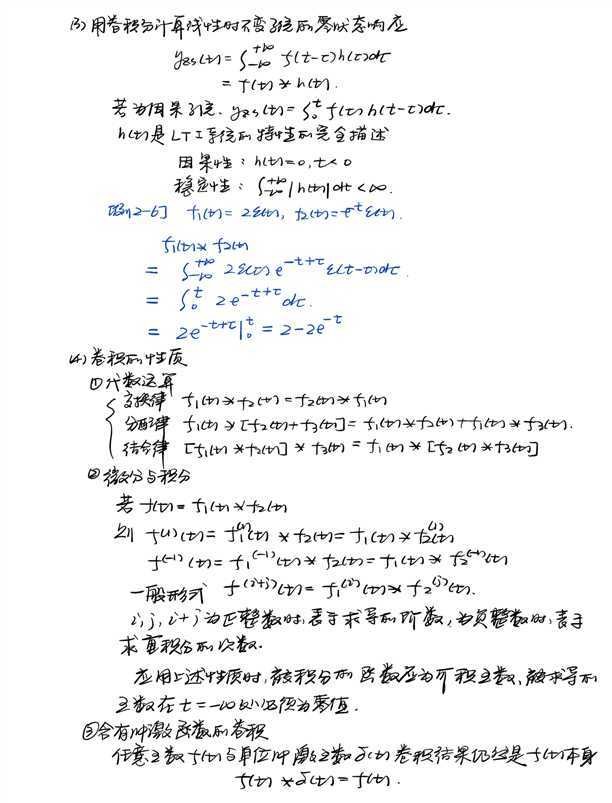 (3) 用卷积分计算线性时不变系统的零状态响应
yzs(t) = ∫₋∞^+∞ f(t-τ)h(τ)dτ
= f(t) * h(t).
若为因果系统. yzs(t) = ∫₀^t f(τ)h(t-τ)dτ.
h(t)是LTI系统的特性的完全描述
因果性: h(t)=0, t<0
稳定性: ∫₋∞^+∞ |h(t)|dt < ∞.
[例2-6] f₁(t) = 2ε(t), f₂(t) = e^-t ε(t).
f₁(t) * f₂(t)
= ∫₋∞^+∞ 2ε(τ) e^(-t+τ) ε(t-τ)dτ.
= ∫₀^t 2e^(-t+τ) dτ.
= 2e^(-t+τ)|₀^t = 2-2e^-t
(4) 卷积的性质
①代数运算
交换律 f₁(t) * f₂(t) = f₂(t) * f₁(t)
分配律 f₁(t) * [f₂(t)+f₃(t)] = f₁(t)*f₂(t)+f₁(t)*f₃(t).
结合律 [f₁(t)*f₂(t)] * f₃(t) = f₁(t) * [f₂(t)*f₃(t)]
②微分与积分
若 f(t) = f₁(t) * f₂(t)
则 f^(1)(t) = f₁^(1)(t) * f₂(t) = f₁(t) * f₂^(1)(t)
f^(-1)(t) = f₁^(-1)(t) * f₂(t) = f₁(t) * f₂^(-1)(t)
一般形式 f^(i+j)(t) = f₁^(i)(t) * f₂^(j)(t).
i, j, i+j为正整数时,表示求导的阶数,为负整数时,表示
求重积分的次数.
应用上述性质时,被积分的函数应为可积函数,被求导的
函数在t=-∞处必须为零值.
③含有冲激函数的卷积
任意函数f(t)与单位冲激函数δ(t)卷积结果仍然是f(t)本身
f(t) * δ(t) = f(t).